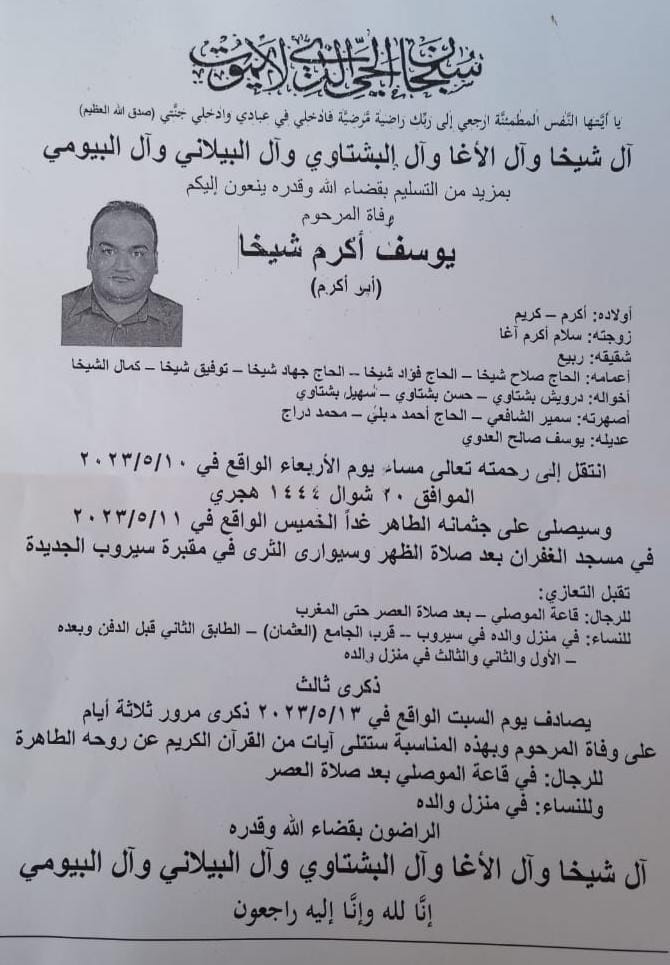 سبحان الحي الذي لا يموت
يا أيتها النفس المطمئنة ارجعي إلى ربك راضية مرضية فادخلي في عبادي وادخلي جنتي (صدق الله العظيم)
آل شيخا وآل الأغا وآل البشتاوي وآل البيلاني وآل البيومي
بمزيد من التسليم بقضاء الله وقدره ينعون إليكم
وفاة المرحوم
يوسف أكرم شيخا
(أبو أكرم)
أولاده: أكرم – كريم
زوجته: سلام أكرم آغا
شقيقه: ربيع
أعمامه: الحاج صلاح شيخا – الحاج فؤاد شيخا – الحاج جهاد شيخا – توفيق شيخا – كمال الشيخا
أخواله: درويش بشتاوي – حسن بشتاوي – سهيل بشتاوي
أصهرته: سمير الشافعي – الحاج أحمد – محمد دراج
عديله: يوسف صالح العدوي
انتقل إلى رحمته تعالى مساء يوم الأربعاء الواقع في ٢٠٢٣/٥/١٠
الموافق ٢٠ شوال ١٤٤٤ هجري
وسيصلى على جثمانه الطاهر غداً الخميس الواقع في ٢٠٢٣/٥/١١
في مسجد الغفران بعد صلاة الظهر وسيوارى الثرى في مقبرة سيروب الجديدة
تقبل التعازي:
للرجال: قاعة الموصلي – بعد صلاة العصر حتى المغرب
للنساء: في منزل والده في سيروب – قرب الجامع (العثمان) – الطابق الثاني قبل الدفن وبعده
– الأول والثاني والثالث في منزل والده
ذكرى ثالث
يصادف يوم السبت الواقع في ٢٠٢٣/٥/١٣ ذكرى مرور ثلاثة أيام
على وفاة المرحوم وبهذه المناسبة ستتلى آيات من القرآن الكريم عن روحه الطاهرة
للرجال: في قاعة الموصلي بعد صلاة العصر
وللنساء: في منزل والده
الراضون بقضاء الله وقدره
آل شيخا وآل الأغا وآل البشتاوي وآل البيلاني وآل البيومي
إنَّا لله وإنَّا إليه راجعون